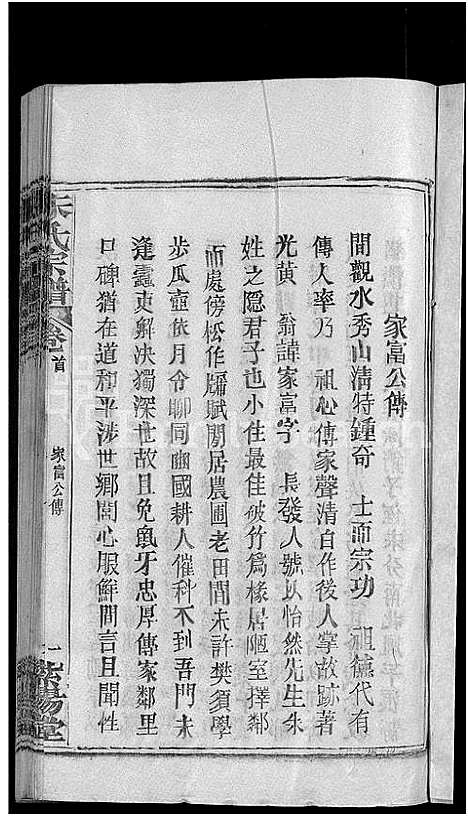 家富公傳
間觀水秀山清特鍾奇 士而宗功 祖德代有
傳人率乃 祖心傳家聲清自作後人掌故跡著
光黃 翁諱家富字 長發人號以怡然先生朱
姓之隠君子也小住最佳破竹爲椽居陋室擇鄰
而處傍松作牖賦閒居農圃老田間未許樊須學
步瓜壺依月令聊同豳國耕人催科不到吾門未
逢蠧吏觧决獨深世故且免䑕牙忠厚傳家鄰里
口碑猶在道和平涉世鄉閭心服鮮間言且聞性
朱氏宗譜
卷首
家富公傳
一
紫陽堂